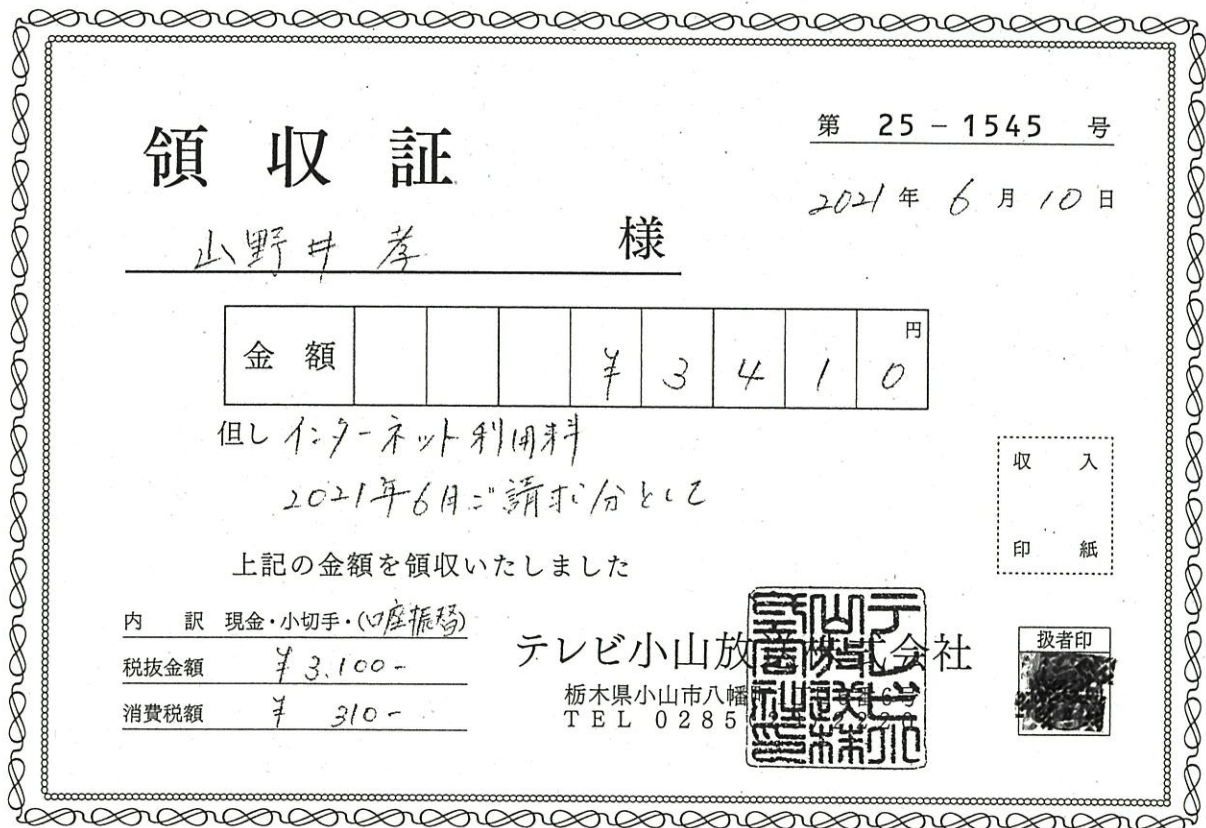 領収証
第 25-1545 号
2021年 6月 10日
山野井 孝 様
金額 ¥3410円
但し インターネット利用料
2021年6月ご請求分として
上記の金額を領収いたしました
収入
印紙
内訳 現金・小切手・(口座振替)
税抜金額 ¥3.100-
消費税額 ¥ 310-
テレビ小山放送株式会社
栃木県小山市八幡
TEL 0285
扱者印